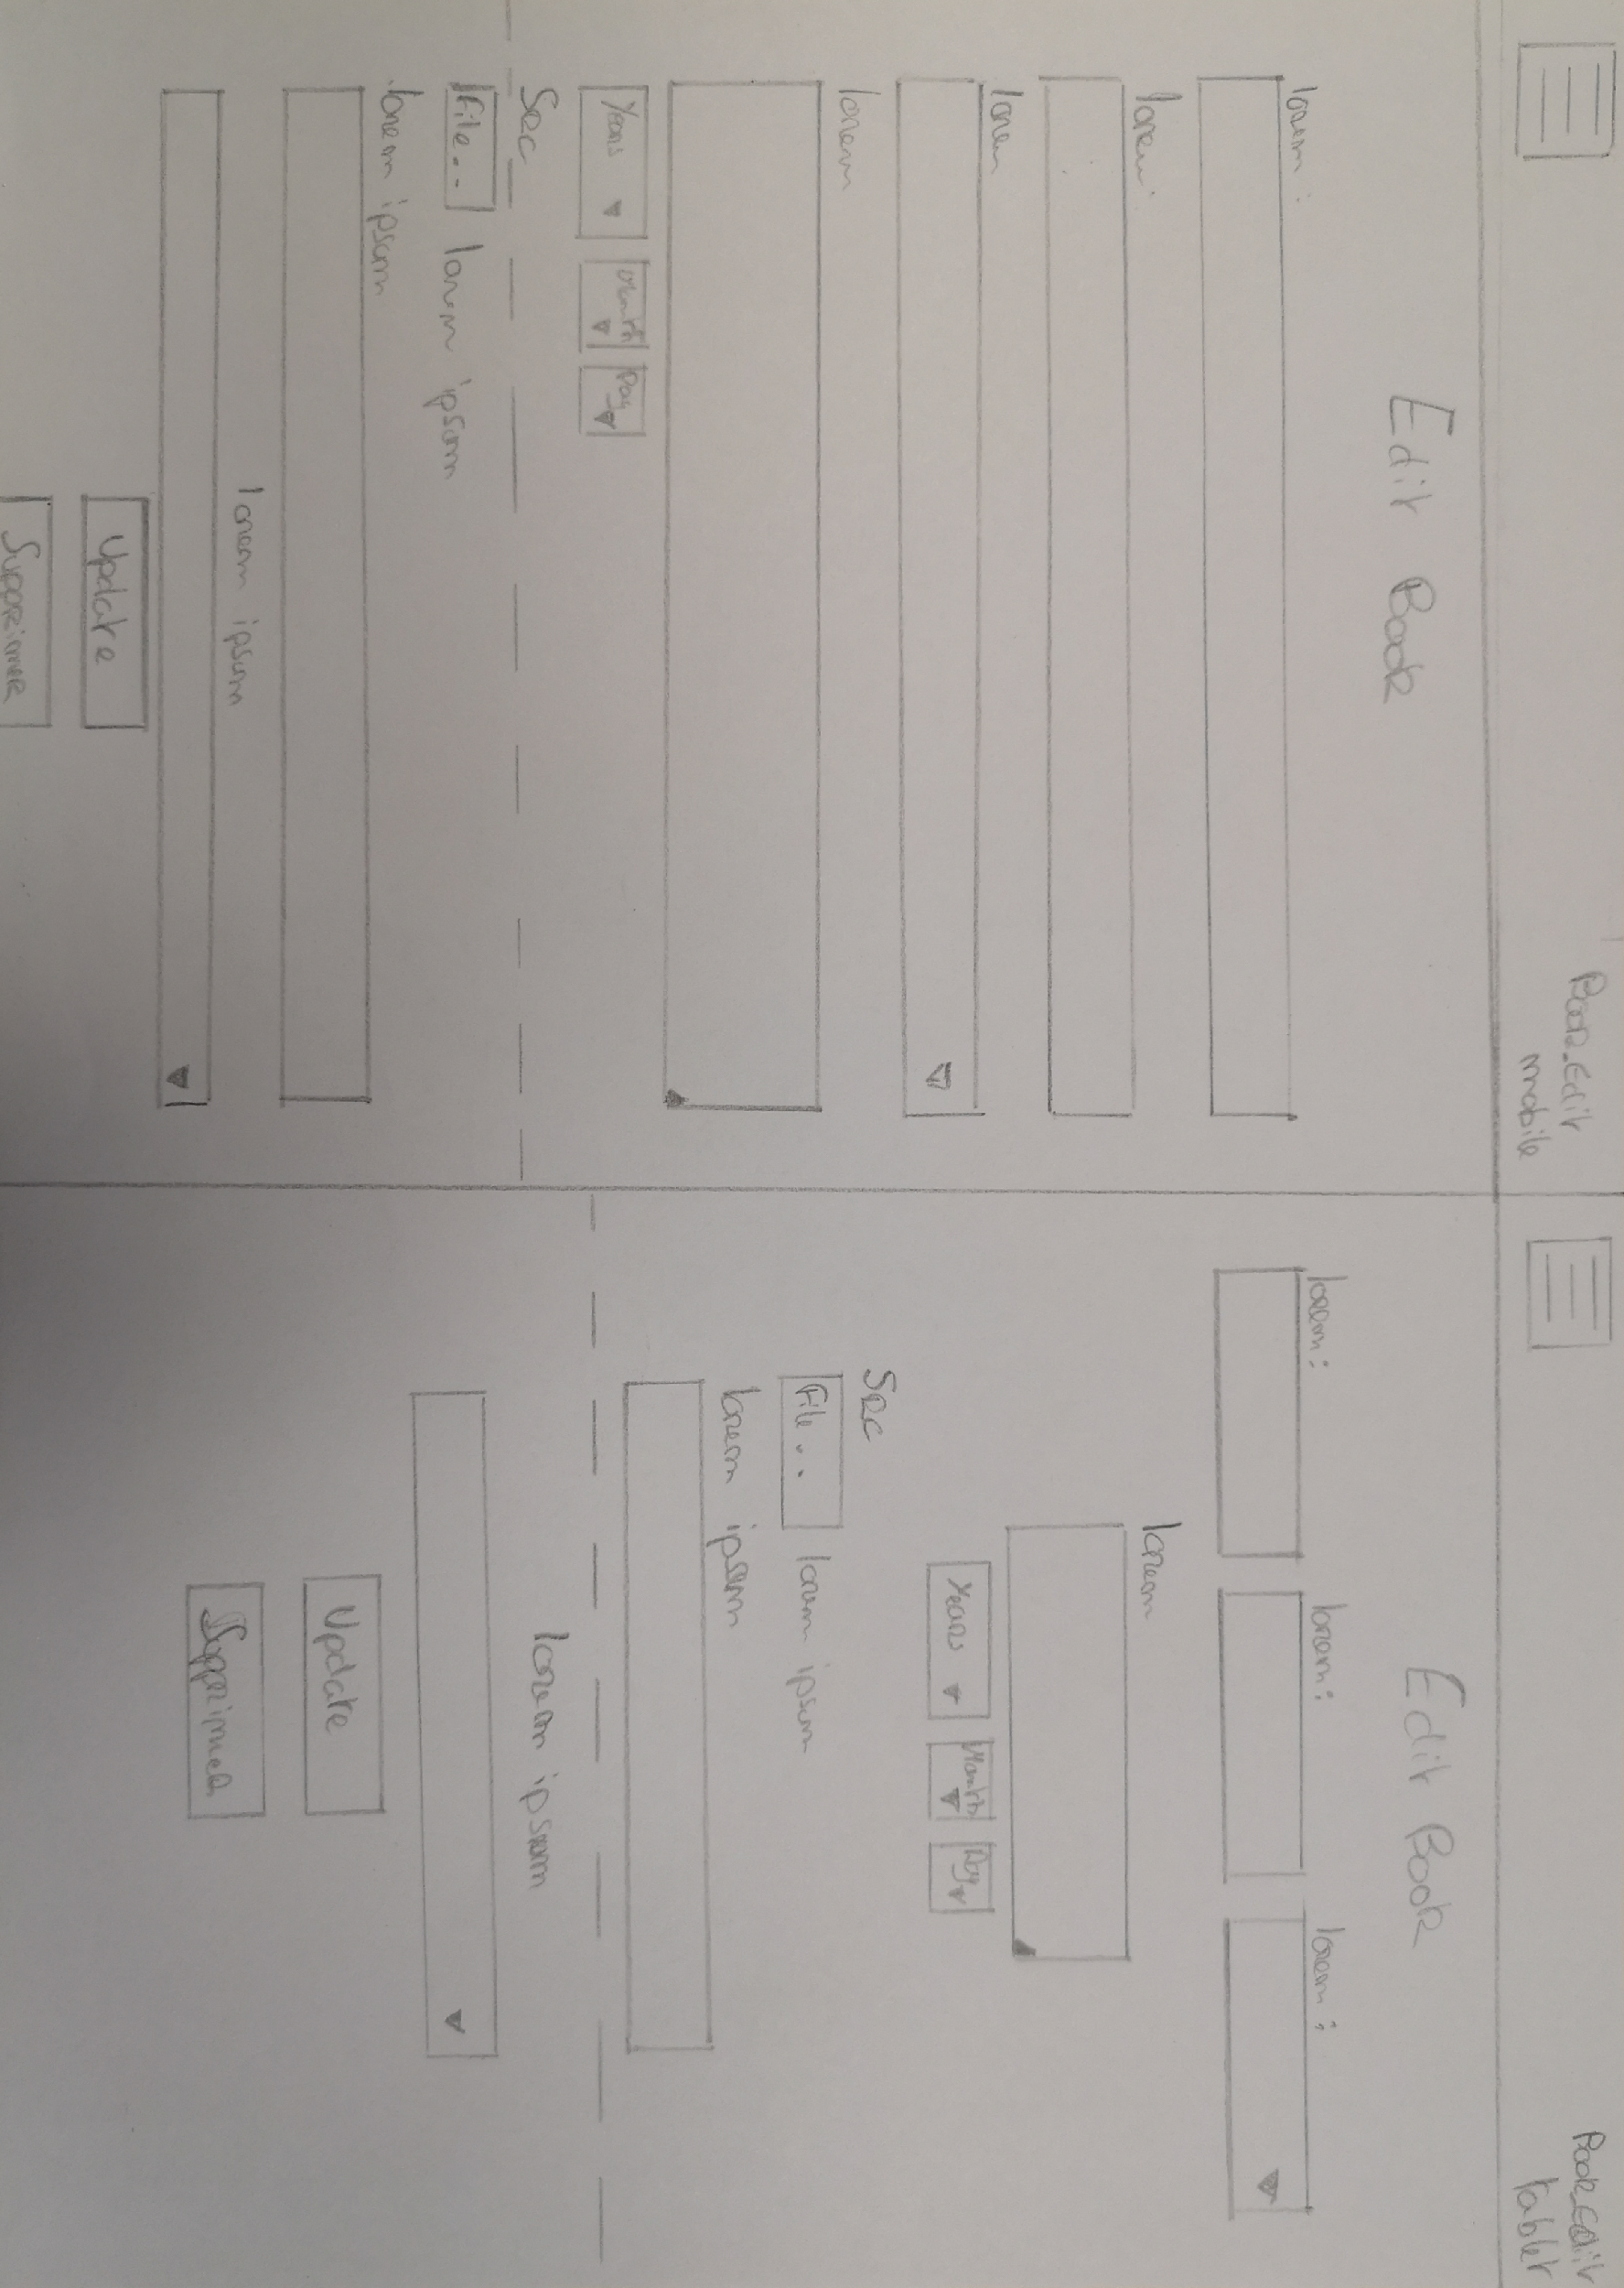 Book_Edit
mobile
Edit Book
lorem :
lorem :
lorem
lorem
Years
Month
Day
Src
File..
lorem ipsum
lorem ipsum
lorem ipsum
Update
Supprimer
Book_Edit
tablet
Edit Book
lorem :
lorem :
lorem :
lorem
Years
Month
Day
Src
File...
lorem ipsum
lorem ipsum
lorem ipsum
Update
Supprimer